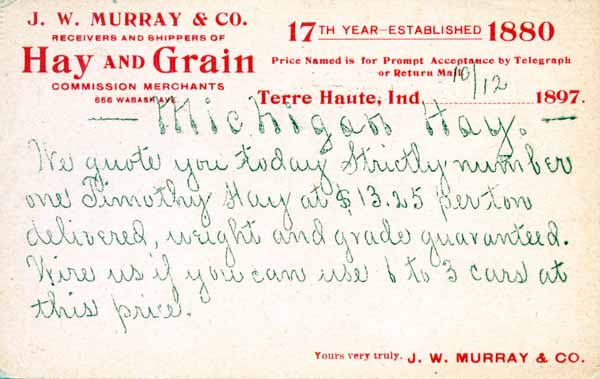 J. W. MURRAY & CO.
RECEIVERS AND SHIPPERS OF
Hay AND Grain
COMMISSION MERCHANTS
656 WABASH AVE.
17TH YEAR—ESTABLISHED 1880
Price Named is for Prompt Acceptance by Telegraph
or Return Mail
Terre Haute, Ind. 10/12 1897.
— Michigan Hay. —
We quote you today Strictly number
one Timothy Hay at $13.25 per ton
delivered, weight and grade guaranteed.
Wire us if you can use 1 to 3 cars at
this price.
Yours very truly, J. W. MURRAY & CO.